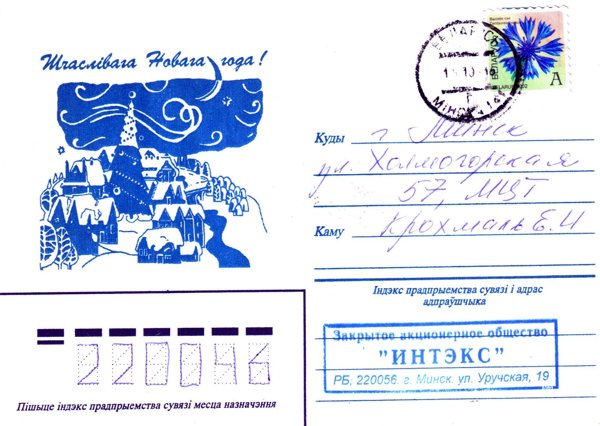 Шчаслівага Новага года!
БЕЛАРУСЬ
МІНСК
БЕЛАРУСЬ
A
Куды г. Минск
ул. Холмогорская
57, МЦТ
Каму Крохмаль Е.И
Індэкс прадпрыемства сувязі і адрас
адпраўшчыка
Закрытое акционерное общество
"ИНТЭКС"
РБ, 220056. г. Минск. ул. Уручская, 19
220046
Пішыце індэкс прадпрыемства сувязі месца назначэння